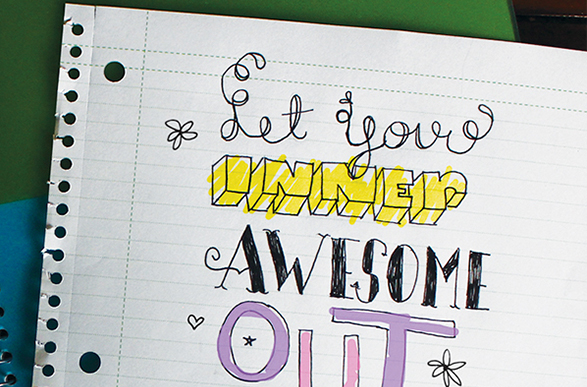 Let Your
INNER
AWESOME
OUT